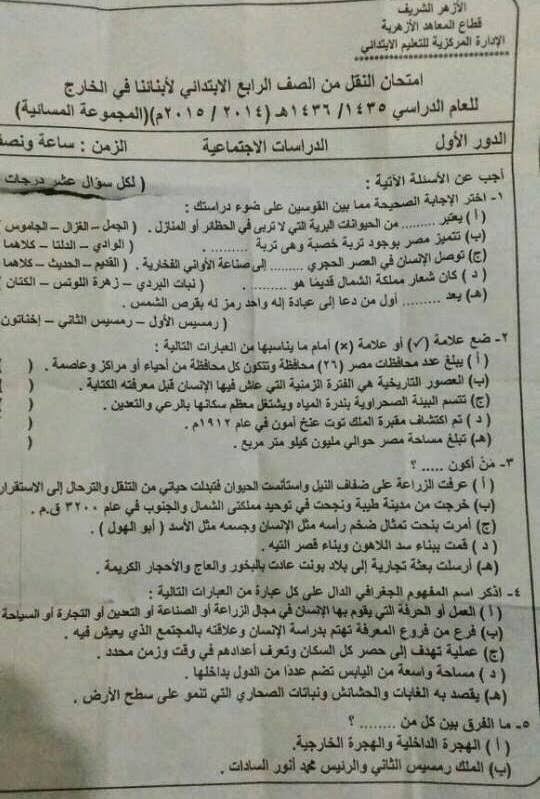 الأزهر الشريف
قطاع المعاهد الأزهرية
الإدارة المركزية للتعليم الابتدائي
امتحان النقل من الصف الرابع الابتدائي لأبنائنا في الخارج
للعام الدراسي ١٤٣٥/ ١٤٣٦هـ (٢٠١٤ / ٢٠١٥م)(المجموعة المسائية)
الدور الأول الدراسات الاجتماعية الزمن : ساعة ونصف
أجب عن الأسئلة الآتية : ( لكل سؤال عشر درجات
١- اختر الإجابة الصحيحة مما بين القوسين على ضوء دراستك :
( أ ) يعتبر ......... من الحيوانات البرية التي لا تربى في الحظائر أو المنازل . ( الجمل – الغزال – الجاموس )
(ب) تتميز مصر بوجود تربة خصبة وهى تربة ......... . ( الوادي – الدلتا – كلاهما
(ج) توصل الإنسان في العصر الحجري ......... إلى صناعة الأواني الفخارية . ( القديم – الحديث – كلاهما
( د ) كان شعار مملكة الشمال قديمًا هو ......... . ( نبات البردي – زهرة اللوتس – الكتان )
(هـ) يعد ......... أول من دعا إلى عبادة إله واحد رمز له بقرص الشمس .
( رمسيس الأول – رمسيس الثاني – إخناتون
٢- ضع علامة (✓) أو علامة (×) أمام ما يناسبها من العبارات التالية :
( أ ) يبلغ عدد محافظات مصر (٢٦) محافظة وتتكون كل محافظة من أحياء أو مراكز وعاصمة . ( )
(ب) العصور التاريخية هي الفترة الزمنية التي عاش فيها الإنسان قبل معرفته الكتابة . ( )
(ج) تتسم البيئة الصحراوية بندرة المياه ويشتغل معظم سكانها بالرعي والتعدين . (
( د ) تم اكتشاف مقبرة الملك توت عنخ آمون في عام ١٩١٢م . (
(هـ) تبلغ مساحة مصر حوالي مليون كيلو متر مربع . (
٣- مَنْ أكون ..... ؟
( أ ) عرفت الزراعة على ضفاف النيل واستأنست الحيوان فتبدلت حياتي من التنقل والترحال إلى الاستقرار
(ب) خرجت من مدينة طيبة ونجحت في توحيد مملكتى الشمال والجنوب في عام ٣٢٠٠ ق.م .
(ج) أمرت بنحت تمثال ضخم رأسه مثل الإنسان وجسمه مثل الأسد ( أبو الهول ) .
( د ) قمت ببناء سد اللاهون وبناء قصر التيه .
(هـ) أرسلت بعثة تجارية إلى بلاد بونت عادت بالبخور والعاج والأحجار الكريمة .
٤- اذكر اسم المفهوم الجغرافي الدال على كل عبارة من العبارات التالية :
( أ ) العمل أو الحرفة التي يقوم بها الإنسان في مجال الزراعة أو الصناعة أو التعدين أو التجارة أو السياحة
(ب) فرع من فروع المعرفة تهتم بدراسة الإنسان وعلاقته بالمجتمع الذي يعيش فيه .
(ج) عملية تهدف إلى حصر كل السكان وتعرف أعدادهم في وقت وزمن محدد .
( د ) مساحة واسعة من اليابس تضم عددًا من الدول بداخلها .
(هـ) يقصد به الغابات والحشائش ونباتات الصحاري التي تنمو على سطح الأرض .
٥- ما الفرق بين كل من ........ ؟
( أ ) الهجرة الداخلية والهجرة الخارجية.
(ب) الملك رمسيس الثاني والرئيس محمد أنور السادات .